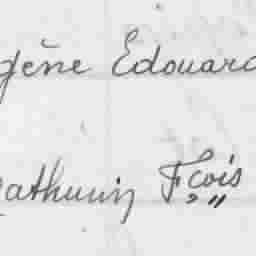 gène Edouard
athurin Fçois